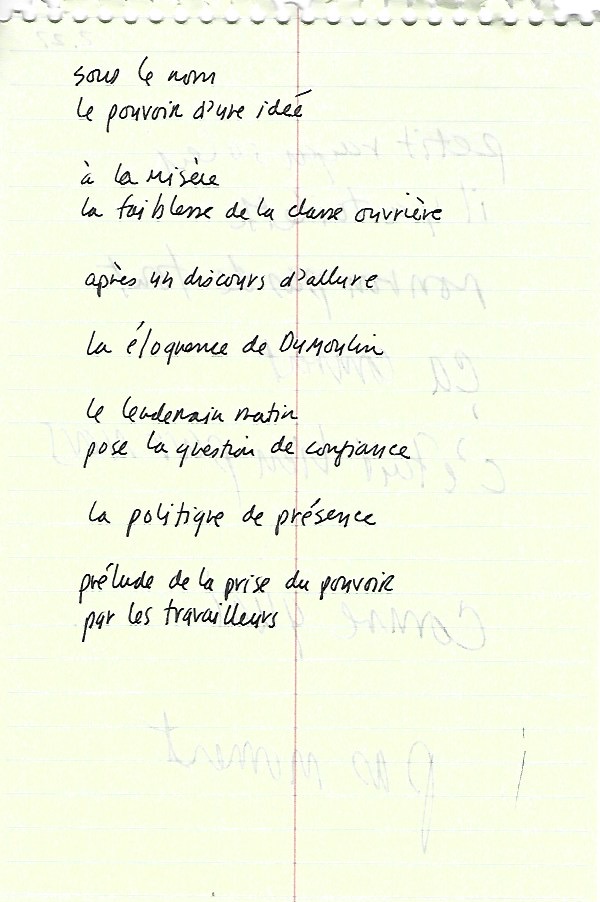 sous le nom
le pouvoir d'une idée
à la misère
la faiblesse de la classe ouvrière
après un discours d'allure
la éloquence de Dumoulin
le lendemain matin
pose la question de confiance
la politique de présence
prélude de la prise du pouvoir
par les travailleurs